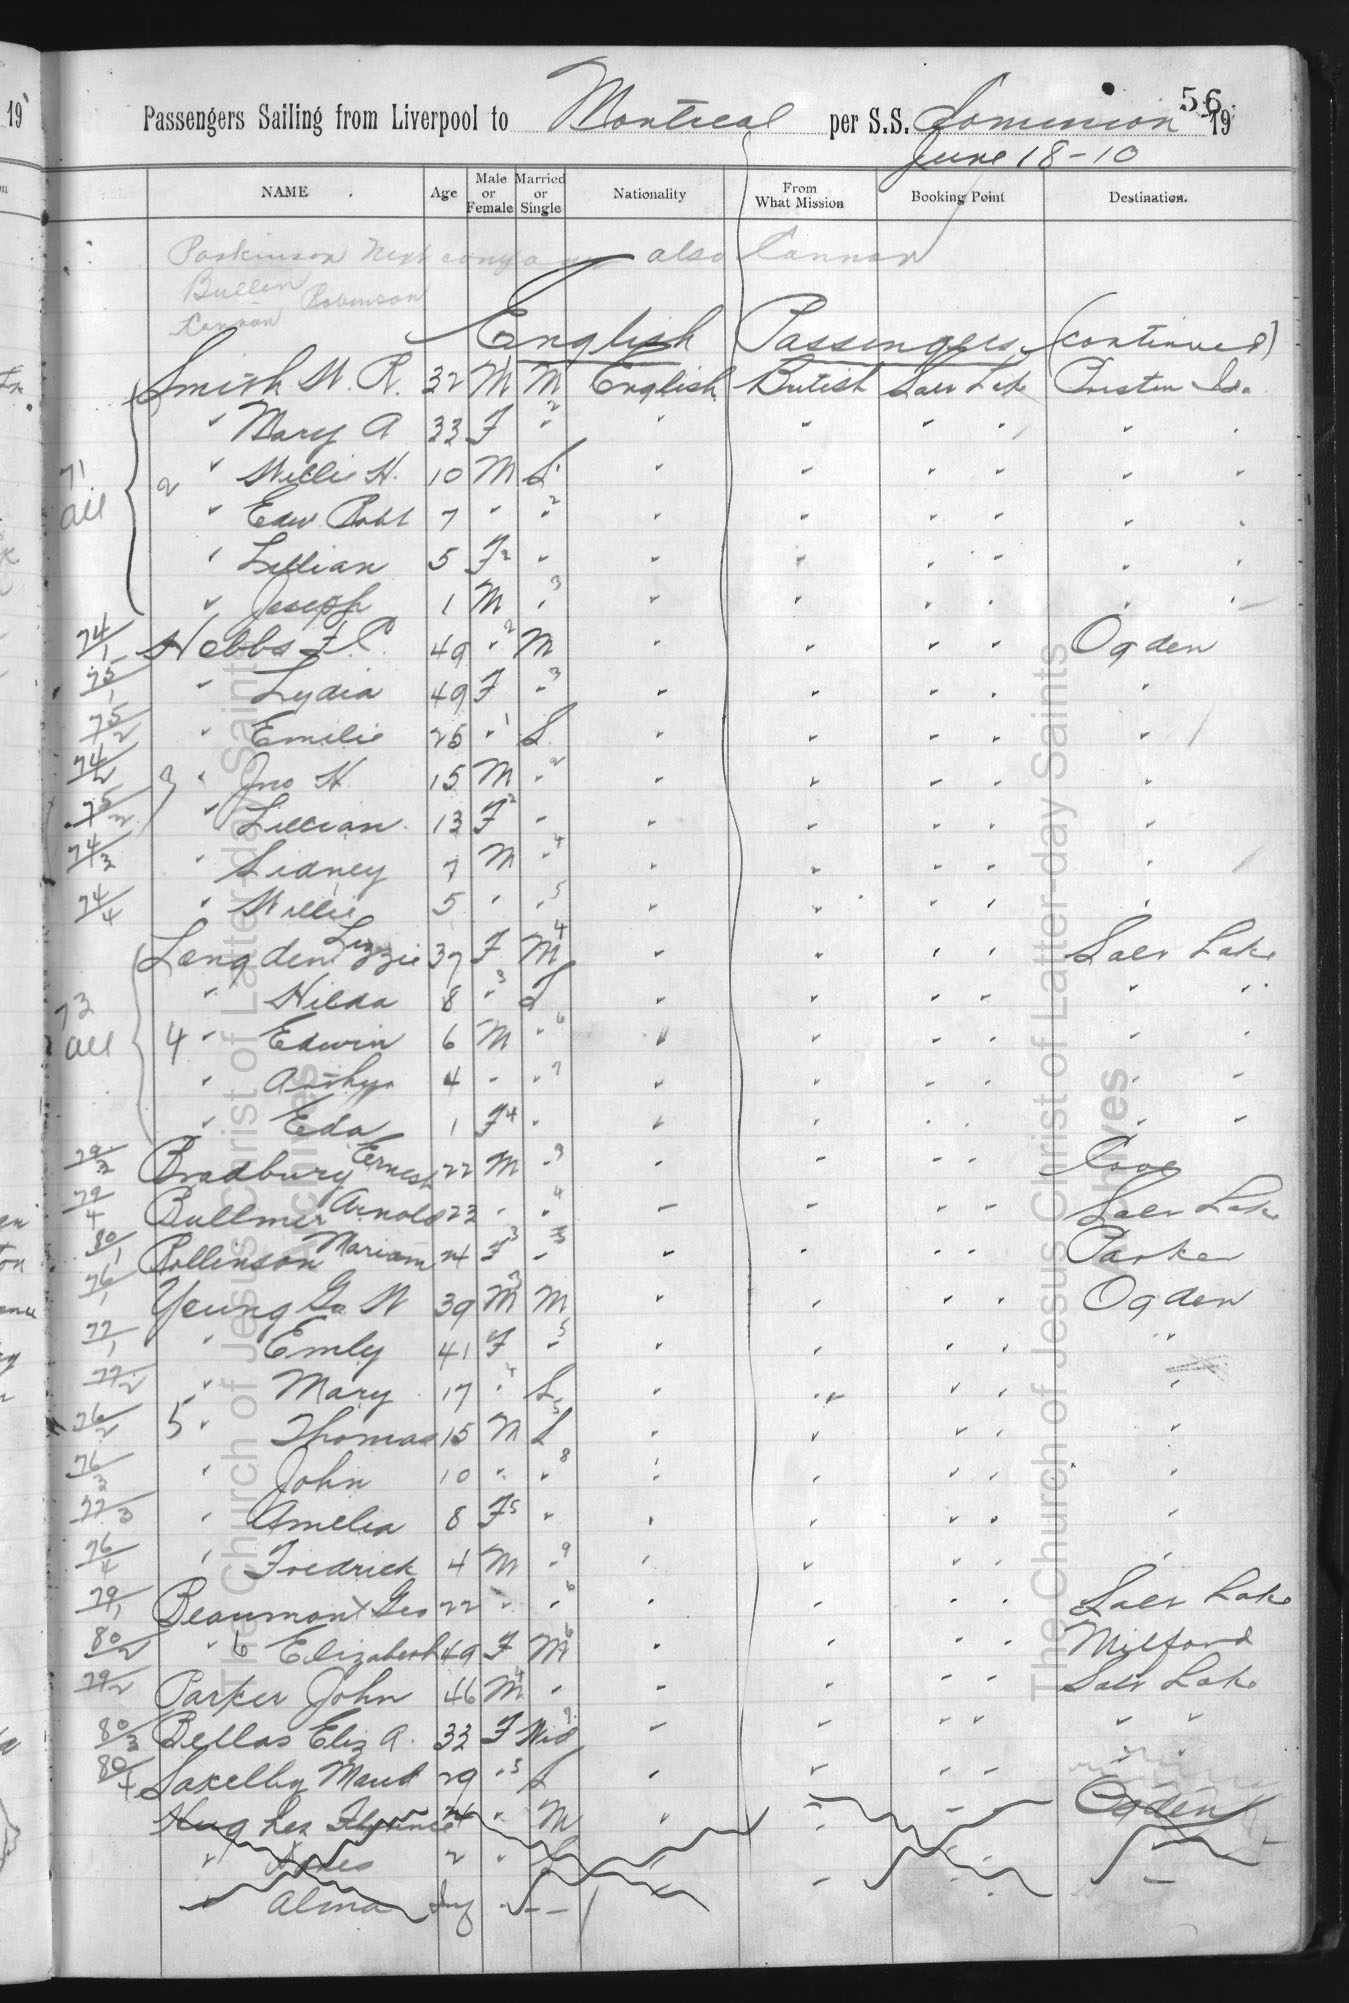 56
Passengers Sailing from Liverpool to Montreal per S.S. Dominion 19
June 18-10
NAME Age Male or Female Married or Single Nationality From What Mission Booking Point Destination.
Parkinson Next company also Cannon
Bullen Robinson
Cannon
English Passengers (continued)
Smith W. R. 32 M M English British Salt Lake Preston Ida.
" Mary A 33 F " " " " " " "
71 All 2 " Willie H. 10 M S " " " " " "
" Edw Robt 7 " " " " " " " "
" Lillian 5 F " " " " " " "
" Joseph 1 M " " " " " " "
74/1 Hebbs F. P. 49 " M " " " Ogden
75/1 " Lydia 49 F " " " " " "
75/2 " Emilie 25 " S " " " " "
74/2 3 " Jno H 15 M " " " " " "
75/2 " Lillian 13 F " " " " " "
74/3 " Sidney 7 M " " " " " "
74/4 " Willie 5 " " " " " " "
Langden Lizzie 37 F M " " " " Salt Lake
" Hilda 8 " S " " " " " "
73 All 4 " Edwin 6 M " " " " " " "
" Arthur 4 " " " " " " " "
" Eda 1 F " " " " " " "
79/3 Bradbury Ernest 22 M " " " " " Cove
79/4 Bullmer Arnold 23 " " " " " " Salt Lake
80/1 Rollinson Mariam 24 F " " " " " Parker
76/1 Young Go W 39 M M " " " " Ogden
77/1 " Emly 41 F " " " " " "
77/2 " Mary 17 " S " " " " "
76/2 5 " Thomas 15 M S " " " " "
76/3 " John 10 " " " " " " "
77/3 " Amelia 8 F " " " " " "
76/4 " Fredrick 4 M " " " " " "
79/1 Beaumont Geo 22 " " " " " " Salt Lake
80/2 " 6 Elizabeth 49 F M " " " " Milford
79/2 Parker John 46 M " " " " Salt Lake
80/3 Bellas Eliz A. 33 F Wid " " " " " "
80/4 Saxelby Maud 29 " S " " " " " "
Hughes Florence 24 " M " " " Ogden
" Agnes 2 " S " " "
" Alma Inf " " " "
The Church of Jesus Christ of Latter-day Saints
Archives
The Church of Jesus Christ of Latter-day Saints
Archives